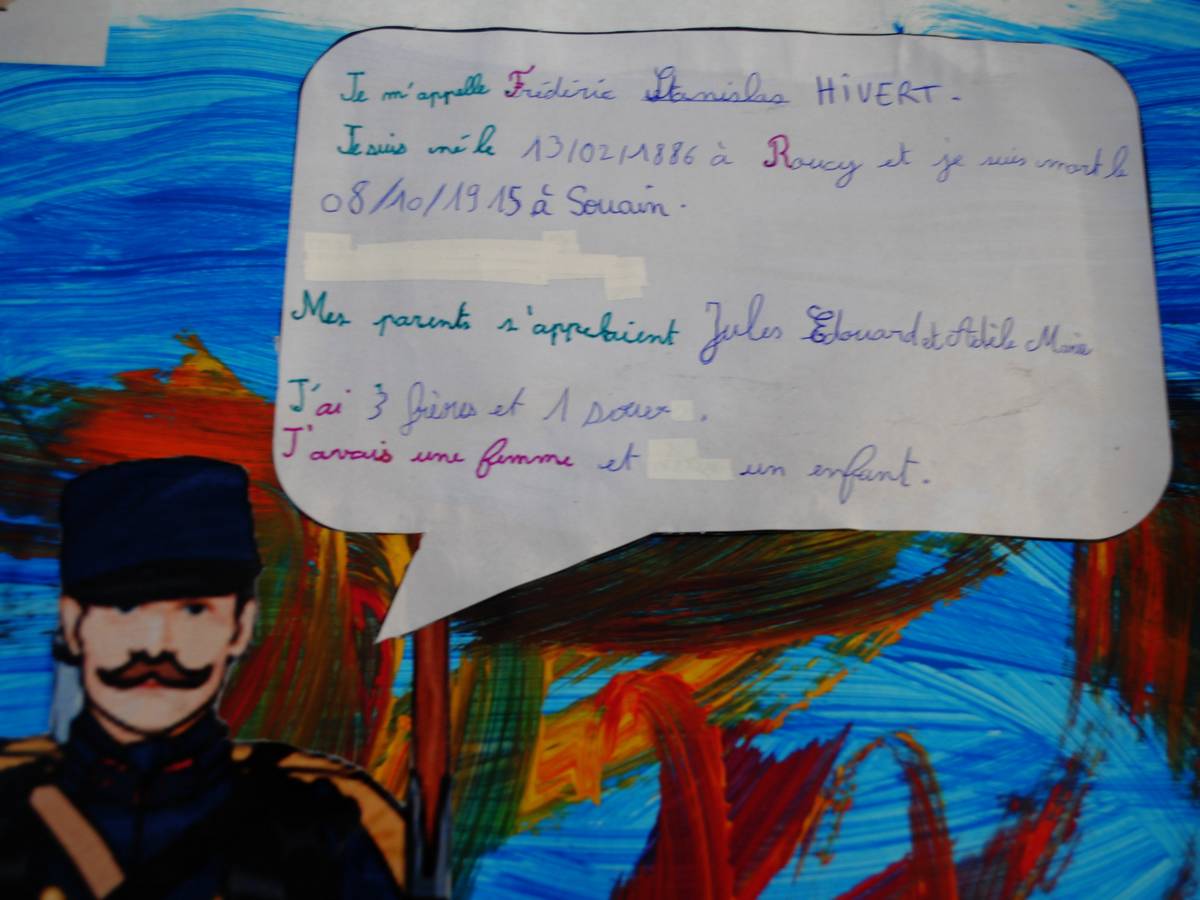 Je m'appelle Frédéric Stanislas HiVERT.
Je suis né le 13/02/1886 à Roucy et je suis mort le
08/10/1915 à Souain.
Mes parents s'appelaient Jules Edouard et Adèle Marie
J'ai 3 frères et 1 soeur.
J'avais une femme et un enfant.